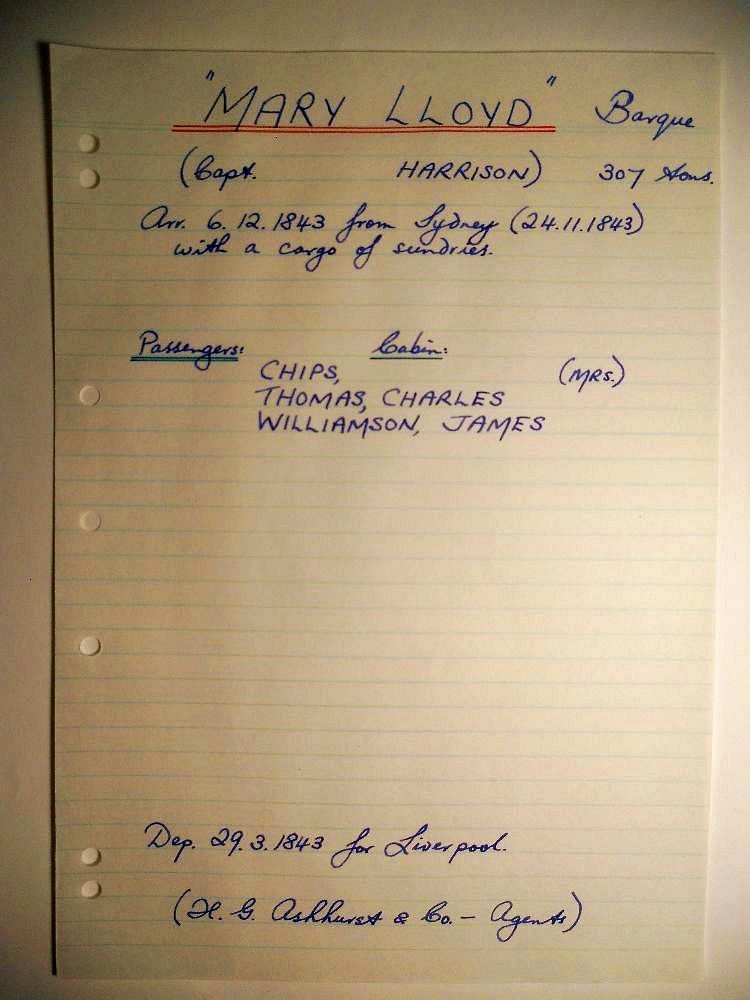 "MARY LLOYD" Barque
(Capt. HARRISON) 307 tons.
Arr. 6.12.1843 from Sydney (24.11.1843)
with a cargo of sundries.
Passengers: Cabin:
CHIPS, (MRS.)
THOMAS, CHARLES
WILLIAMSON, JAMES
Dep. 29.3.1843 for Liverpool.
(H. G. Ashhurst & Co. - Agents)